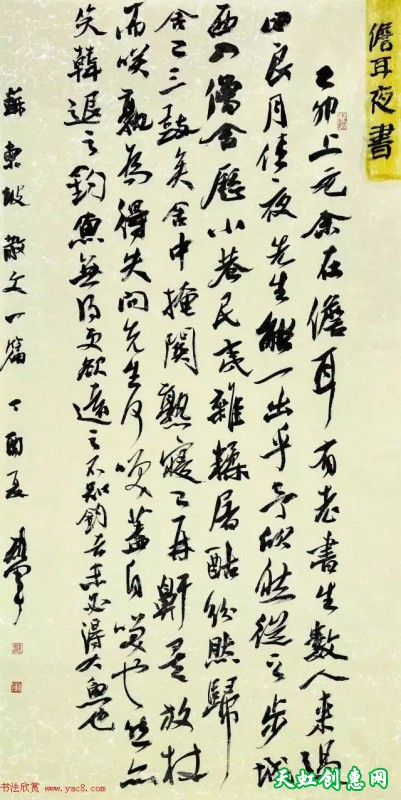 儋耳夜書
己卯上元余在儋耳有老書生數人來過
曰良月佳夜先生能一出乎予欣然從之步城
西入僧舍歷小巷民夷雜糅屠酤紛然歸
舍已三鼓矣舍中掩關熟寢已再鼾矣放杖
而笑孰為得失問先生何笑蓋自笑也然亦
笑韓退之釣魚無得更欲遠之不知釣者未必得大魚也
蘇東坡散文一篇 丁酉夏
书法欣赏 www.yac8.com
天虹创惠网